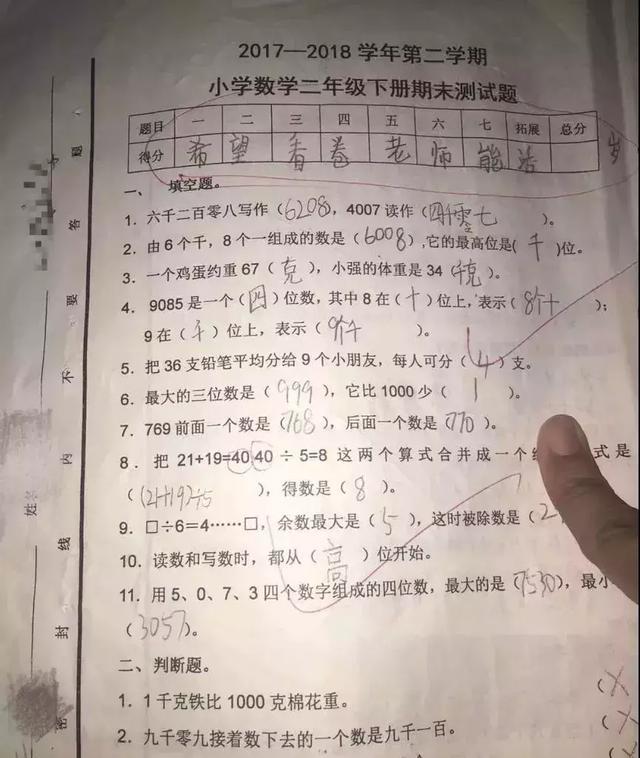 2017—2018 学年第二学期
小学数学二年级下册期末测试题
题目 一 二 三 四 五 六 七 拓展 总分
得分 希 望 香 卷 老 师 能 活 岁
一、 填空题。
1. 六千二百零八写作（6208），4007 读作（四千零七）。
2. 由 6 个千，8 个一组成的数是（6008）,它的最高位是（千）位。
3. 一个鸡蛋约重 67（克），小强的体重是 34（千克）。
4. 9085 是一个（四）位数，其中 8 在（十）位上，表示（8个十）；
9 在（千）位上，表示（9个千）。
5. 把 36 支铅笔平均分给 9 个小朋友，每人可分（4）支。
6. 最大的三位数是（999），它比 1000 少（1）。
7. 769 前面一个数是（768），后面一个数是（770）。
8. 把 21+19=40 40 ÷ 5=8 这 两 个 算 式 合 并 成 一 个 式 是
（(21+19)÷5），得数是（8）。
9. □÷6＝4……□，余数最大是（5），这时被除数是（2
10. 读数和写数时，都从（高）位开始。
11. 用 5、0、7、3 四个数字组成的四位数，最大的是（7530），最小
（3057）。
二、判断题。
1. 1 千克铁比 1000 克棉花重。 （×
2. 九千零九接着数下去的一个数是九千一百。 （×
题 答 要 不 内 线 封 密
姓名